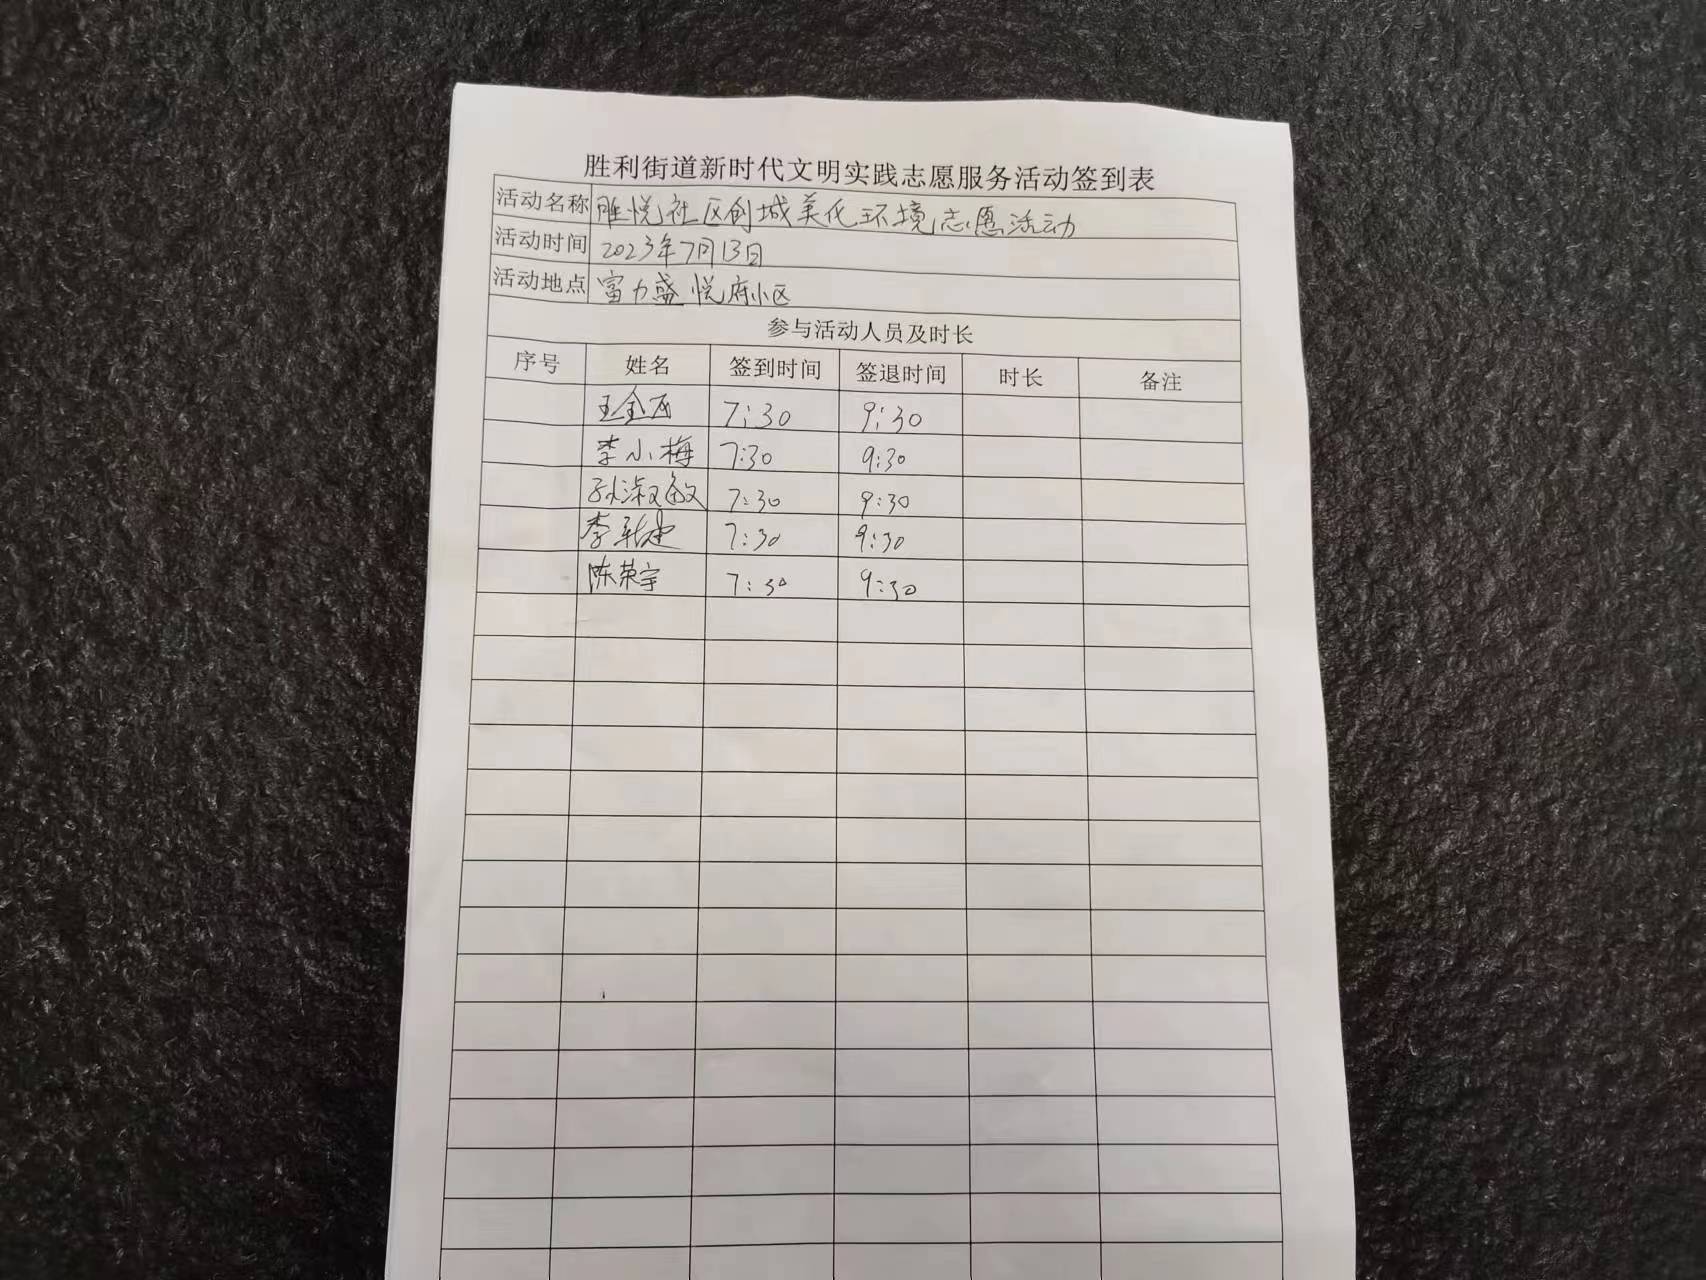 胜利街道新时代文明实践志愿服务活动签到表
活动名称 胜悦社区创城美化环境志愿活动
活动时间 2023年7月13日
活动地点 富力盛悦府小区
参与活动人员及时长
序号 姓名 签到时间 签退时间 时长 备注
王金 7:30 9:30
李小梅 7:30 9:30
孙淑敏 7:30 9:30
李 7:30 9:30
陈荣宇 7:30 9:30